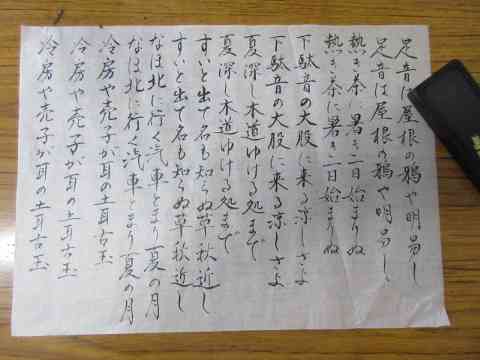 足音は屋根の鴉や明易し
足音は屋根の鴉や明易し
熱き茶に暑き一日始まりぬ
熱き茶に暑き一日始まりぬ
下駄音の大股に来る涼しさよ
下駄音の大股に来る涼しさよ
夏深し木道ゆける処まで
夏深し木道ゆける処まで
すいと出て名も知らぬ草秋近し
すいと出て名も知らぬ草秋近し
なほ北に行く汽車とまり夏の月
なほ北に行く汽車とまり夏の月
冷房や売子が耳の土耳古玉
冷房や売子が耳の土耳古玉
冷房や売子が耳の土耳古玉